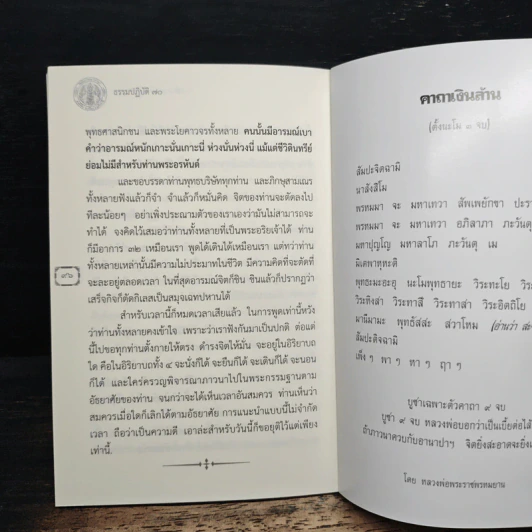 ธรรมปฏิบัติ ๗๐
พุทธศาสนิกชน และพระโยคาวจรทั้งหลาย คนนั้นมีอารมณ์เบา
คำว่าอารมณ์หนักเกาะนั่นเกาะนี่ ห่วงนั่นห่วงนี่ แม้แต่ชีวิตินทรีย์
ย่อมไม่มีสำหรับท่านพระอรหันต์
และขอบรรดาท่านพุทธบริษัททุกท่าน และภิกษุสามเณร
ทั้งหลายฟังแล้วก็จำ จำแล้วก็หมั่นคิด จิตของท่านจะตัดลงไป
ทีละน้อยๆ อย่าเพิ่งประณามตัวของเราเองว่ามันไม่สามารถจะ
ทำได้ จงคิดไว้เสมอว่าท่านทั้งหลายที่เป็นพระอริยเจ้าได้ ท่าน
ก็มีอาการ ๓๒ เหมือนเรา พูดได้เดินได้เหมือนเรา แต่ทว่าท่าน
ทั้งหลายเหล่านั้นมีความไม่ประมาทในชีวิต มีความคิดที่จะตัดที่
จะละอยู่ตลอดเวลา ในที่สุดอารมณ์จิตก็ชิน ชินแล้วก็ปรากฏว่า
เสร็จกิจก็ตัดกิเลสเป็นสมุจเฉทปหานได้
สำหรับเวลานี้ก็หมดเวลาเสียแล้ว ในการพูดเท่านี้หวัง
ว่าท่านทั้งหลายคงเข้าใจ เพราะว่าเราฟังกันมาเป็นปกติ ต่อแต่
นี้ไปขอทุกท่านตั้งกายให้ตรง ดำรงจิตให้มั่น จะอยู่ในอิริยาบถ
ใด คือในอิริยาบถทั้ง ๔ จะนั่งก็ได้ จะยืนก็ได้ จะเดินก็ได้ จะนอน
ก็ได้ และใคร่ครวญพิจารณาภาวนาไปในพระกรรมฐานตาม
อัธยาศัยของท่าน จนกว่าจะได้เห็นเวลาอันสมควร ท่านเห็นว่า
สมควรเมื่อใดก็เลิกได้ตามอัธยาศัย การแนะนำแบบนี้ไม่จำกัด
เวลา ถือว่าเป็นความดี เอาล่ะสำหรับวันนี้ก็ขอยุติไว้แต่เพียง
เท่านี้
คาถาเงินล้าน
(ตั้งนะโม ๓ จบ)
สัมปะจิตฉามิ
นาสังสิโม
พรหมมา จะ มหาเทวา สัพเพยักขา
พรหมมา จะ มหาเทวา อภิลาภา ภะวันตุ
มหาปุญโญ มหาลาโภ ภะวันตุ เม
มิเตพาหุหะติ
พุทธะมะอะอุ นะโมพุทธายะ วิระทะโย
วิระทิงสา วิระทาสี วิระทาสา วิระอิตถิโย
มานีมามะ พุทธัสสะ สวาโหม (อ่านว่า
สัมปะติจฉามิ
เพ็งๆ พาๆ หาๆ ฤาๆ
บูชาเฉพาะตัวคาถา ๙ จบ
บูชา ๙ จบ หลวงพ่อบอกว่าเป็นเบี้ยต่อไส้
ถ้าภาวนาควบกับอานาปาฯ จิตยิ่งสะอาดจะยิ่ง
โดย หลวงพ่อพระราชพรหมยาน